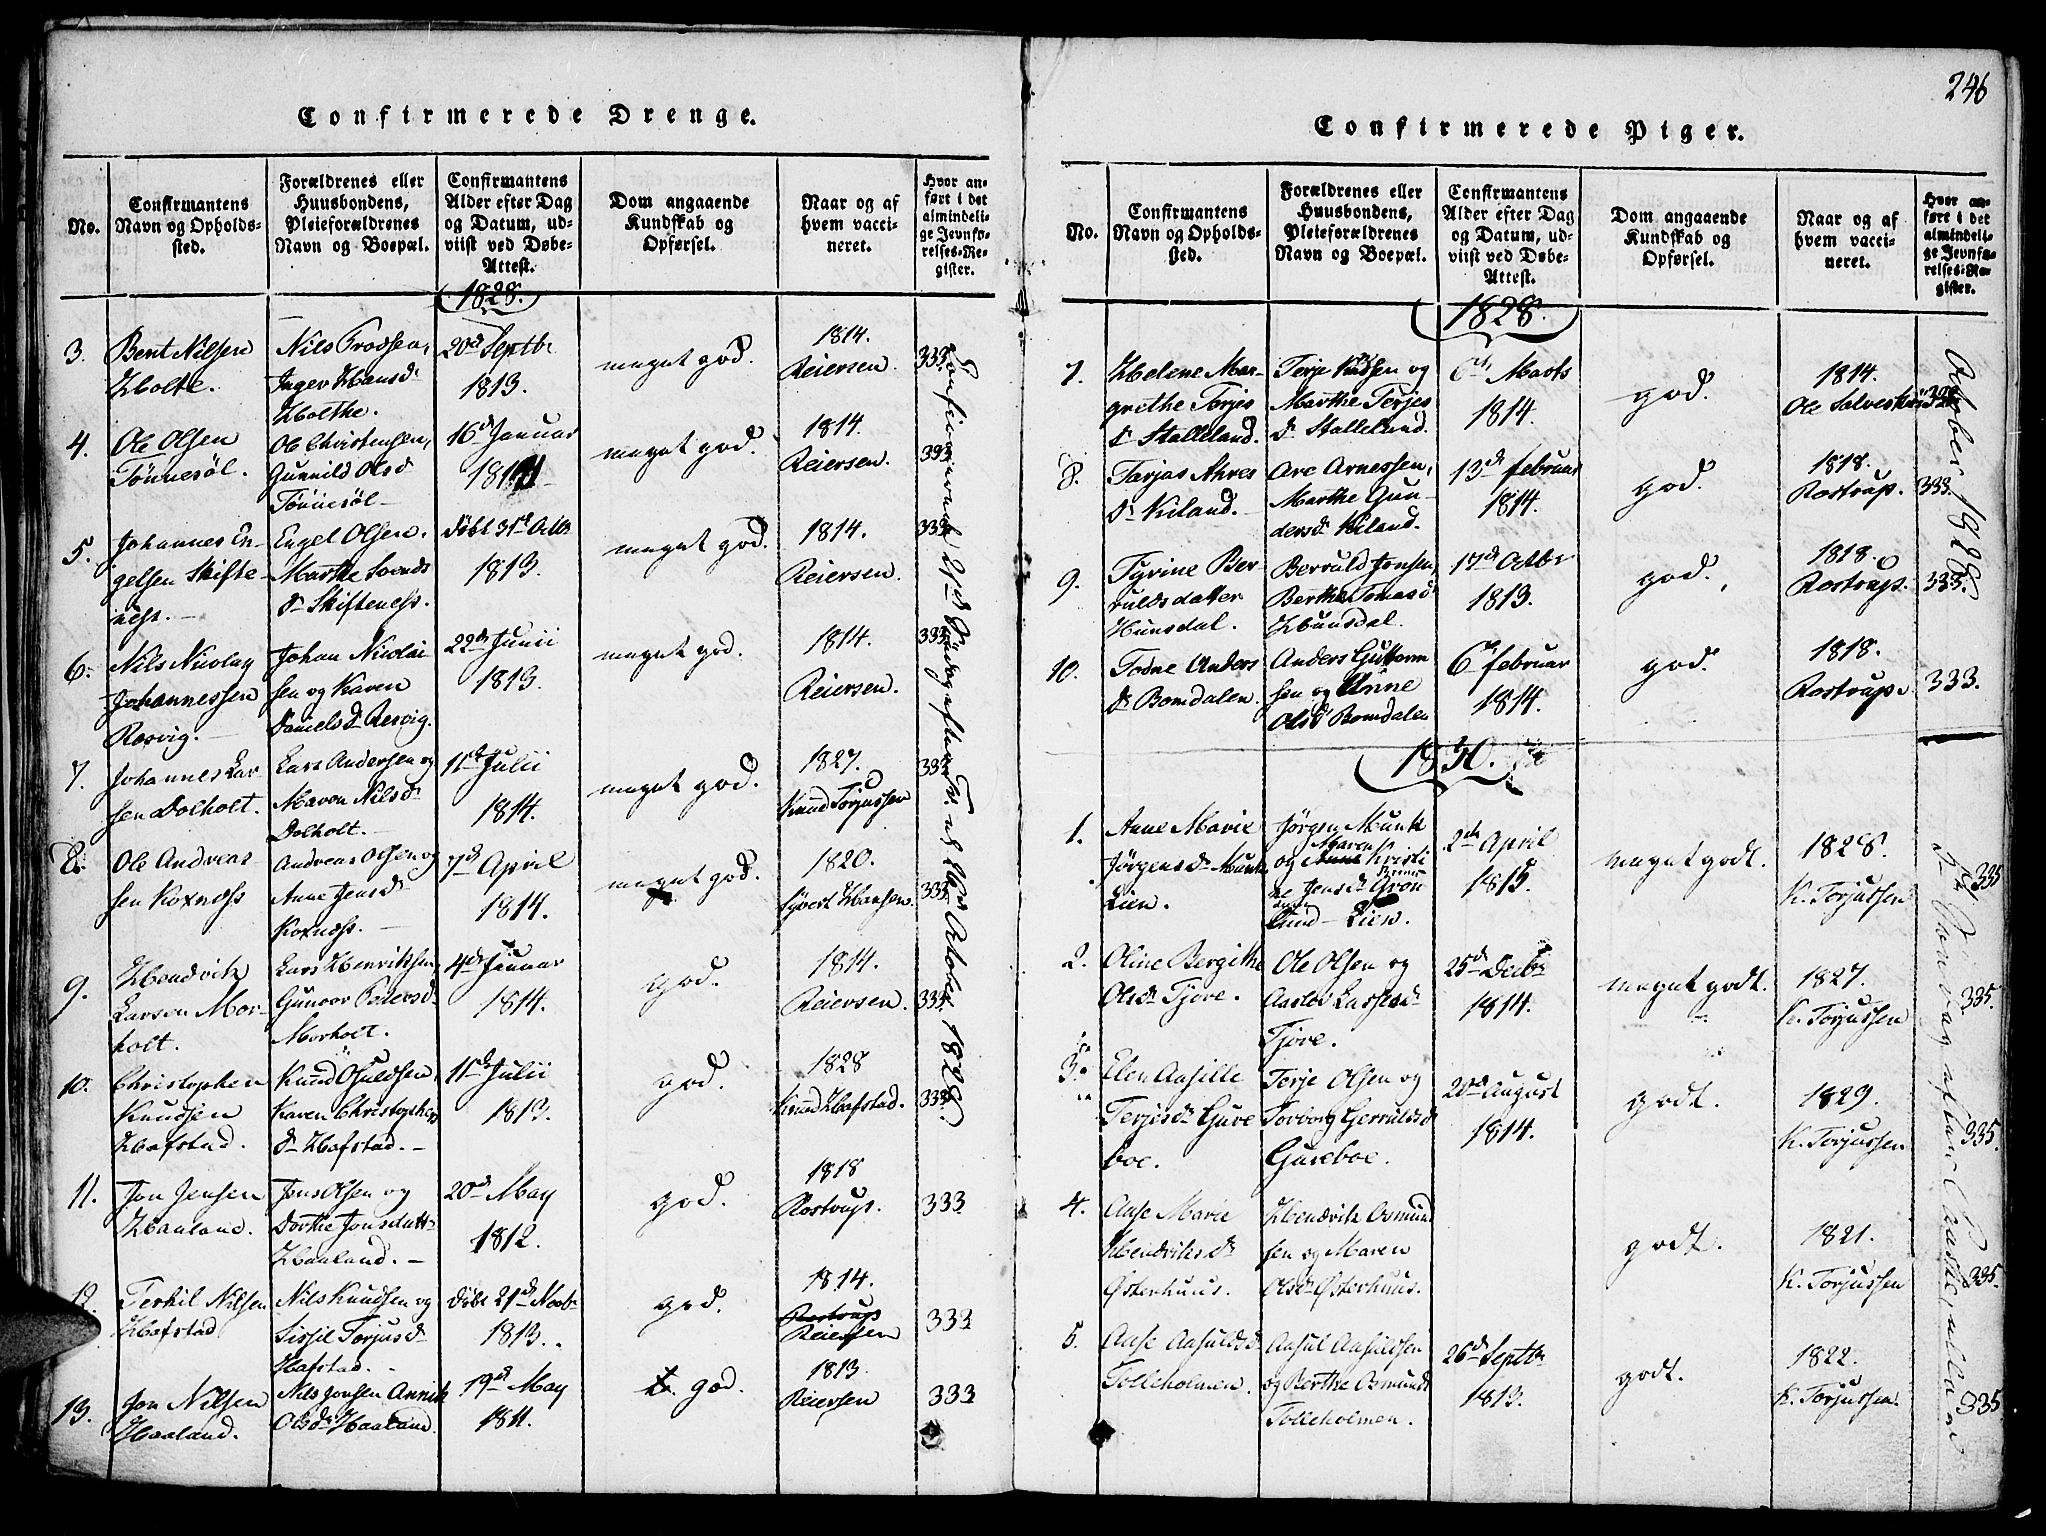 246
Confirmerede Drenge.
No.
Confirmantens
Navn og Opholds-
sted.
Forældrenes eller
Huusbondens,
Pleieforældrenes
Navn og Boepæl.
Confirmantens
Alder efter Dag
og Datum, ud-
viist ved Døbe-
Attest.
Dom angaaende
Kundskab og
Opførsel.
Naar og af
hvem vacci-
neret.
Hvor an-
ført i det
almindeli-
ge Jevnfø-
relses-Re-
gister.
1828.
3.
Bent Nilsen
Holte.
Nils
Inger Hansd
Holthe.
20d Septbr
1813.
meget god.
1814.
Reiersen.
333
4.
Ole Olsen
Tønnesøl.
Ole Christensen,
Gunnild Olsd
Tønnesøl
16d Januar
meget god.
1814.
Reiersen.
333
5.
Johannes En-
gelsen Skifte
næss.
Engel Olsen.
Marthe Svends
Dr Skifteness.
døbt 31d Octbr
1813.
meget god.
1814.
Reiersen.
333
6.
Nils Nicolay
Johannessen
Rosvig.
Johan Nicolai
sen og Karen
Daniels Dr Resvig.
22d Junii
1813.
meget god.
1814.
Reiersen.
333
7.
Johannes Lar-
sen Dolholt.
Lars Andersen og
Maren Nilsd
Dolholt.
11d Julii
1814.
meget god.
1827.
Knud Torjussen
333
8.
Ole Andreas-
sen Koxnæss
Andreas Olsen og
Anne Jensd
Koxnæss.
7d April
1814.
meget god.
1820.
Sivert Hansen.
333
9.
Hendrik
Larsen Mor-
holt.
Lars Henriksen,
Gunvor Pedersd
Morholt.
4d Januar
1814.
god.
1814.
Reiersen.
333
10.
Christopher
Knudsen
Hafstad.
Knud Osuldsen,
Karen Christophers
Dr Hafstad.
11d Julii
1813.
god.
1828
Knud Hafstad.
333
11.
Jon Jensen
Haaland.
Jens Olsen og
Dorthe Jonsdatt
Haaland.
20d May
1812.
god.
1818
Rostrup.
333
12.
Terkil Nilsen
Hafstad
Nils Knudsen og
Sissil Torjusd
Hafstad.
døbt 21d Novbr
1813.
god.
1814.
Rostrup
Reiersen
333
13.
Jon Nilsen
Haaland.
Nils Jonsen Annik
Olsdr Haaland.
19d May
1811.
god.
1813
Reiersen
333
Confirmerede 21d Søndag efter Tr. d. 26de October 1828.
Confirmerede Piger.
No.
Confirmantens
Navn og Opholds-
sted.
Forældrenes eller
Huusbondens,
Pleieforældrenes
Navn og Boepæl.
Confirmantens
Alder efter Dag
og Datum, ud-
viist ved Døbe-
Attest.
Dom angaaende
Kundskab og
Opførsel.
Naar og af
hvem vacci-
neret.
Hvor an-
ført i det
almindeli-
ge Jevnfø-
relses-Re-
gister.
1828.
7.
Helene Mar-
grethe Terjes
Dr Stalleland.
Terje Knudsen og
Marthe Terjes
Dr Stalleland.
6d Marts
1814.
god.
1814.
Ole Salvesen
8.
Tarjas Ahres
Dr Kiland.
Are Arnessen,
Marthe Gun-
dersdr Kiland.
13d februar
1814.
god.
1818.
Rostrup.
333.
9.
Tyrine Ber
ruldsdatter
Hunsdal.
Berruld Jensen,
Berthe Tomasd
Hunsdal.
17d Octbr
1813.
god.
1818.
Rostrup.
333.
10.
Todne Anders
Dr Bomdalen.
Anders Guttorm
sen og Anne
Olsd Bomdalen
6d februar
1814.
god.
1818.
Rostrup.
333.
October 1828.
1830.
1.
Anne Marie
Jørgensdr Munk
Lien.
Jørgen Munk
Maren
og Anne Kristi
ne Jensdr Grøn
lund - Lien.
2d April
1815.
meget godt.
1828.
K. Torjussen
335
2.
Oline Bergithe
Olsdr Tjore.
Ole Olsen og
Aaslov Lassesd
Tjore.
25d Decbr
1814.
meget godt.
1827.
K. Torjussen
335.
3.
Elen Aasille
Terjesdr Gure
boe.
Terje Olsen og
Torborg Gerruldsd
Gureboe.
20d August
1814.
godt.
1829.
K. Torjussen
335.
4.
Aase Marie
Hendriksdr
Østerhuus.
Hendrik Osmund
sen og Maren
Olsdr Østerhuus.
godt.
1821.
K. Torjussen
335.
5.
Aase Aasuldsd
Tolleholmen.
Aasul Aasuldsen
og Berthe Osmunds
Tolleholmen.
26d Septbr
1813.
godt.
1822.
K. Torjussen.
335